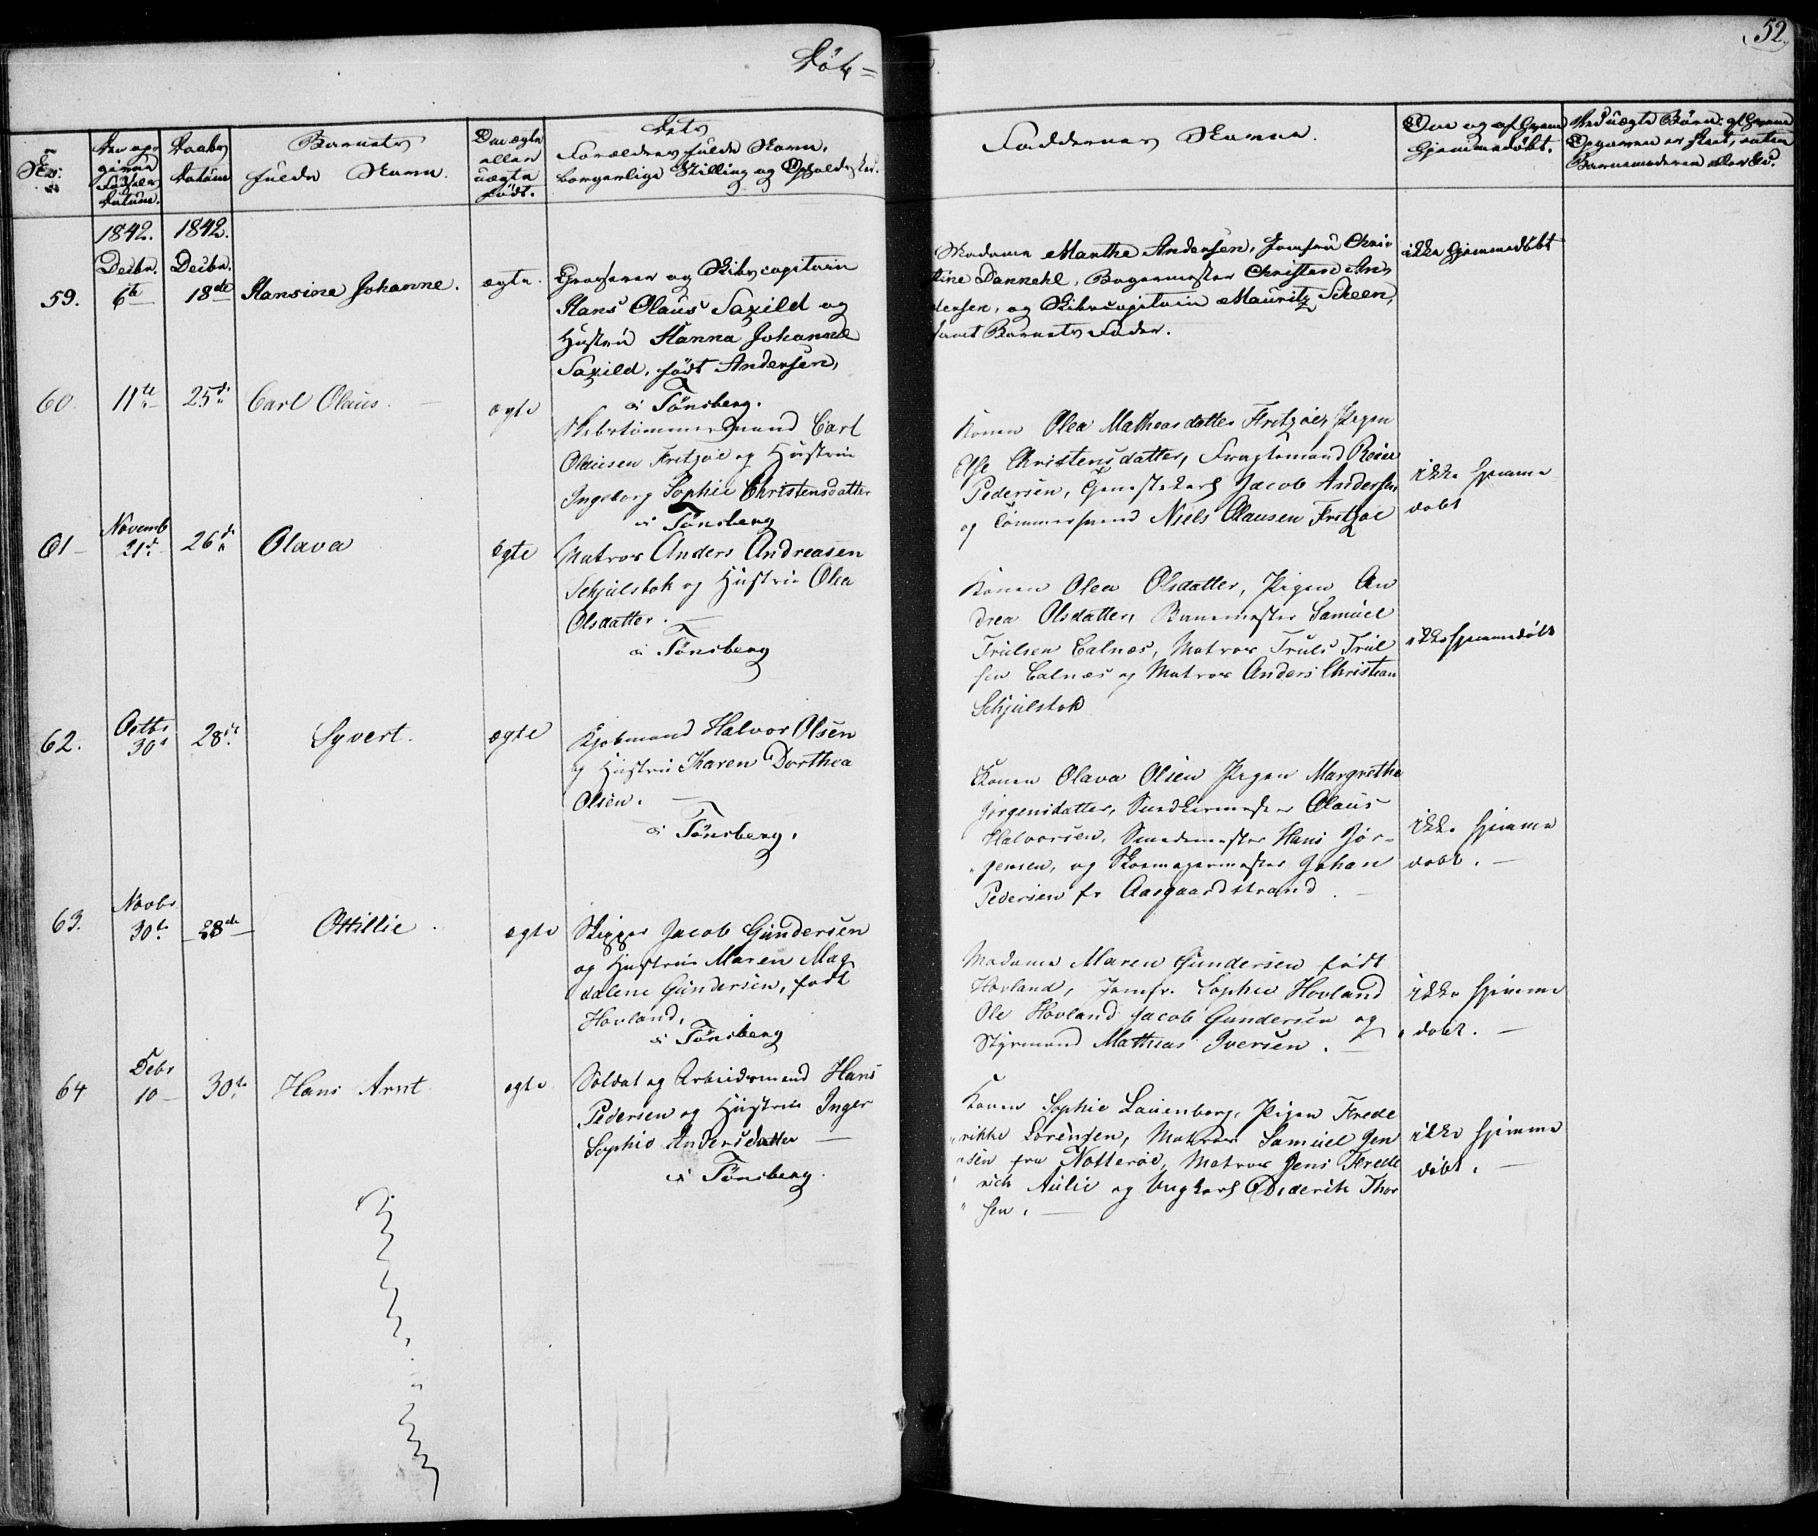 Døb=
52
No:
Den opgivne Fødsels Datum.
Daabs Datum
Barnets fulde Navn.
Om ægte eller uægte født.
Dets Forældres fulde Navn, borgerlige Stilling og Opholdssted.
Faddernes Navne.
Om og af hvem hjemmedøbt.
Ved uægte Børn: af hvem Opgaven er skeet, uden Barnemoderen
1842. 1842.
Decbr. Decbr.
59. 6te 18de Hansine Johanne. ægte.
Grosserer og Skibscapitain
Hans Olaus Saxild og
Hustru Hanna Johanne
Saxild, født Andersen,
i Tønsberg.
Madame Marthe Andersen, Jomfru Chri-
tine Dannehl, Bagermester Christen An-
dersen, og Skibscapitain Mauritz Scheen,
samt Barnets Fader.
ikke hjemmedøbt
60. 11te 25de Carl Olaus. ægte
Skibstømmermand Carl
Olausen Fritzøe og Hustrue
Ingeborg Sophie Christensdatter
i Tønsberg
Konen Olea Matheasdatter Fritzøe, Pigen
Else Christensdatter, Fragtemand Reier
Pedersen, Jacob Andersen
og Tømmermand Niels Olausen Fritzøe
ikke hjemme
døbt
61 Novemb 21de 26de Olava ægte
Matros Anders Andreasen
Schjulstok og Hustrue Olea
Olsdatter.
i Tønsberg
Konen Olea Olsdatter, Pigen An
drea Olsdatter, Samuel
Trulsen Calnæs, Matros Truls Trul
sen Calnæs og Matros Anders Christian
Schjulstok
ikke hjemmedøbt
62. Octbr 30te 28de Syvert. ægte
Kjøbmand Halvor Olsen
og Hustrue Karen Dorthea
Olsen.
i Tønsberg.
Konen Olava Olsen Pigen Margrethe
Jørgensdatter, Snedkermester Olaus
Halvorsen, Smedemester Hans Jør-
gensen, og Skomagermester Johan
Pedersen fr Aasgaardstrand.
ikke hjemme
døbt.
63. Novbr 30te 28de Ottillie. ægte
Skipper Jacob Gundersen
og Hustrue Maren Mag
dalene Gundersen, født
Hovland,
i Tønsberg
Madame Maren Gundersen født
Hovland, Jomfr. Sophie Hovland
Ole Hovland Jacob Gundersen og
Styrmand Mathias Iversen.
ikke hjemme
døbt.
64 Debr 10 30te Hans Arnt ægte
Soldat og Arbeidsmand Hans
Pedersen og Hustrue Inger
Sophie Andersdatter
i Tønsberg.
Konen Sophie Lauenborg, Pigen Frede
rikke Sørensen, Matros Samuel Jen
sen fra Nøtterøe, Matros Jens Frede
rich Aulie og Ungkarl Diderik Thor
sen.
ikke hjemme
døbt.